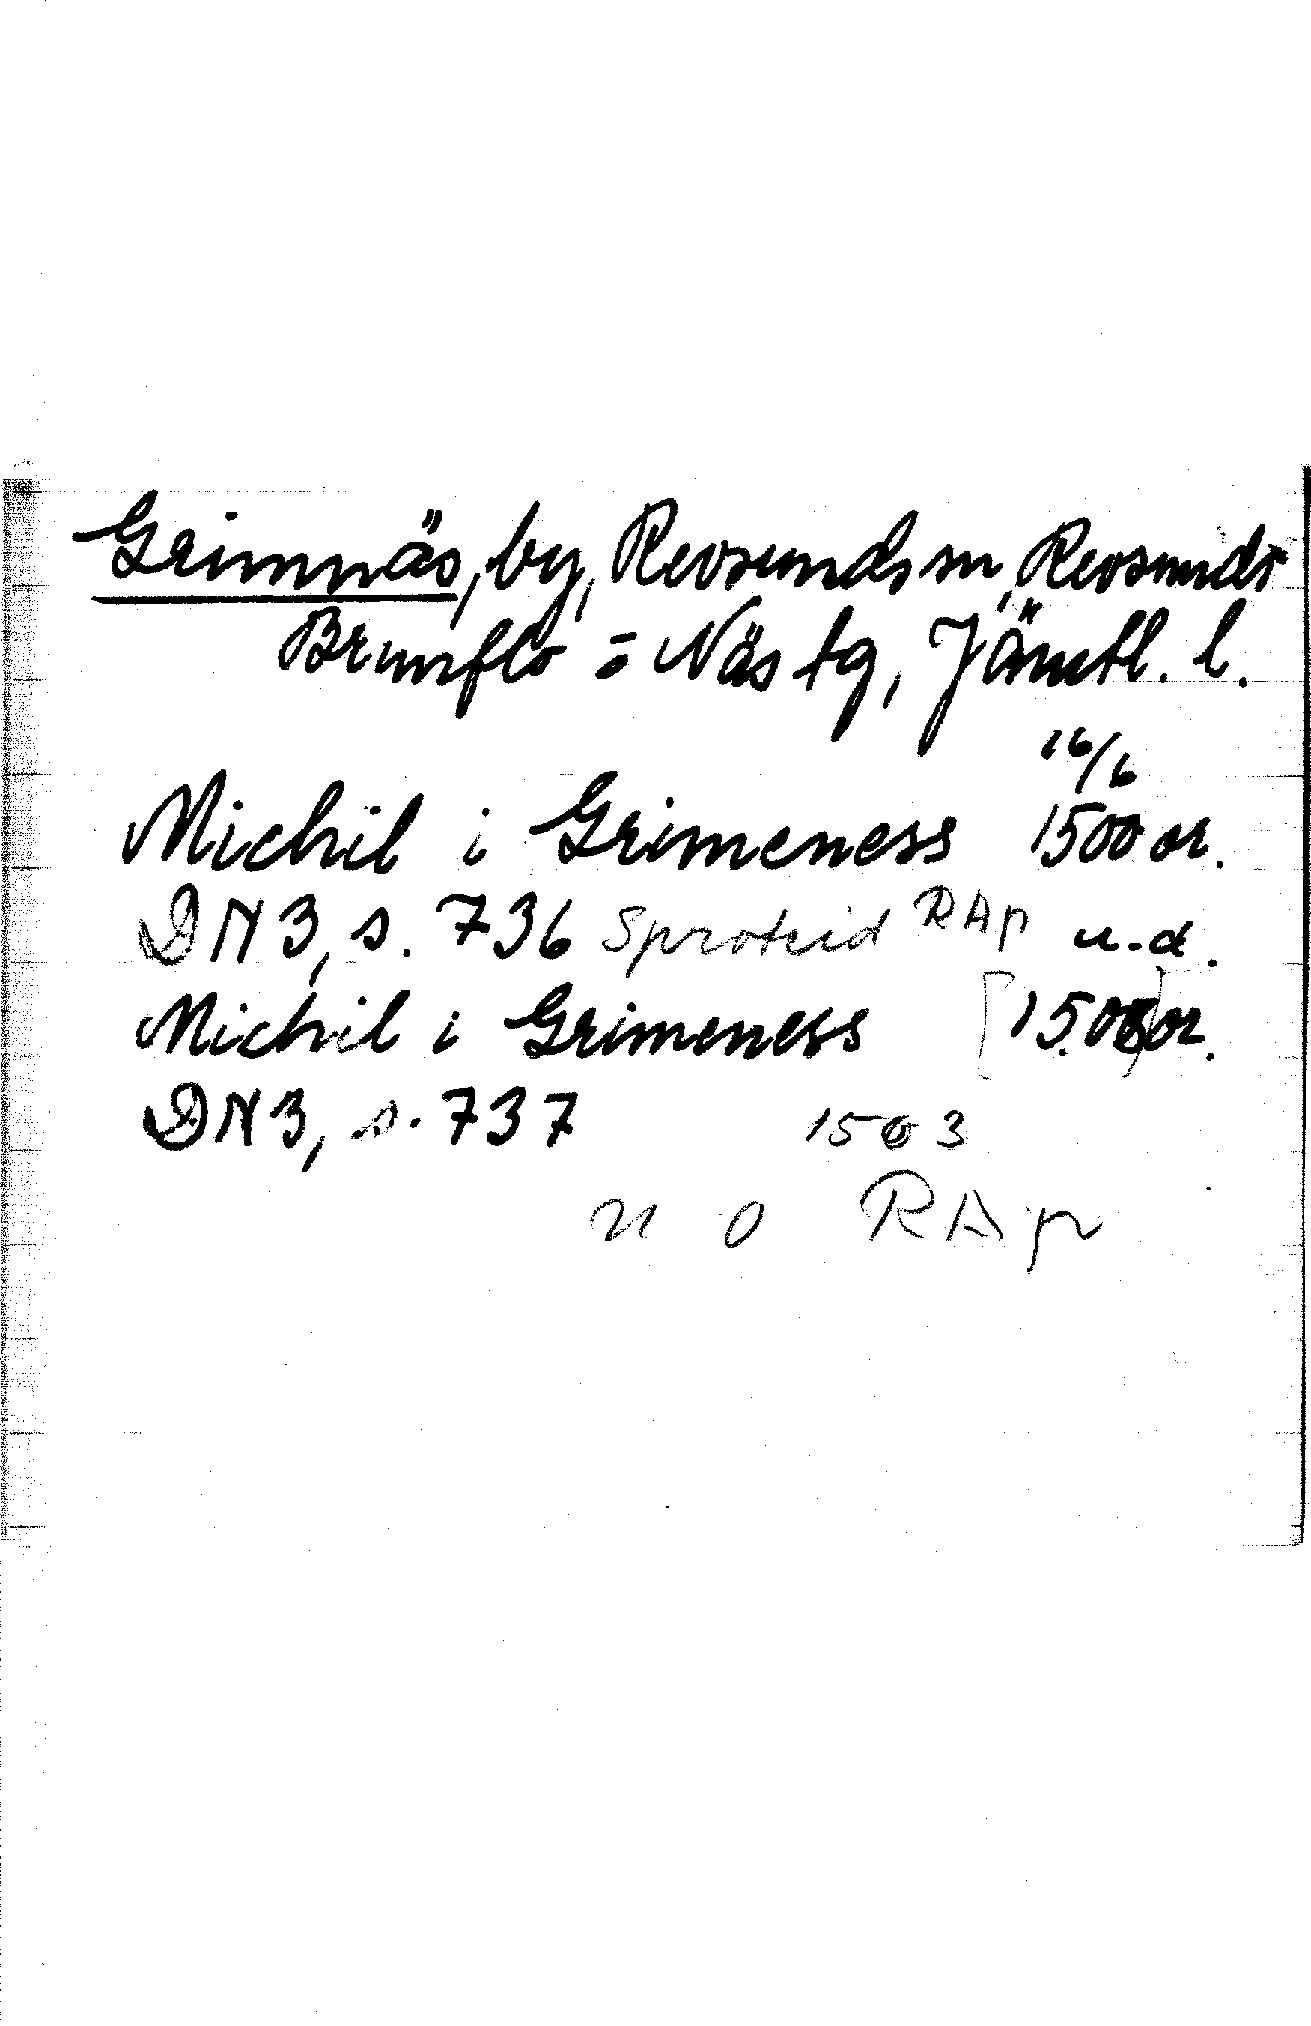 Grimnäs, by, Revsunds sn, Revsunds
Brunflo o Näs tg, Jämtl. l.
16/6
Michil i Grimeness 1500 or.
DN 3, s. 736 Sproteid RAp u.d.
Michil i Grimeness [1500] or.
DN 3, s. 737 1503
n o RAp